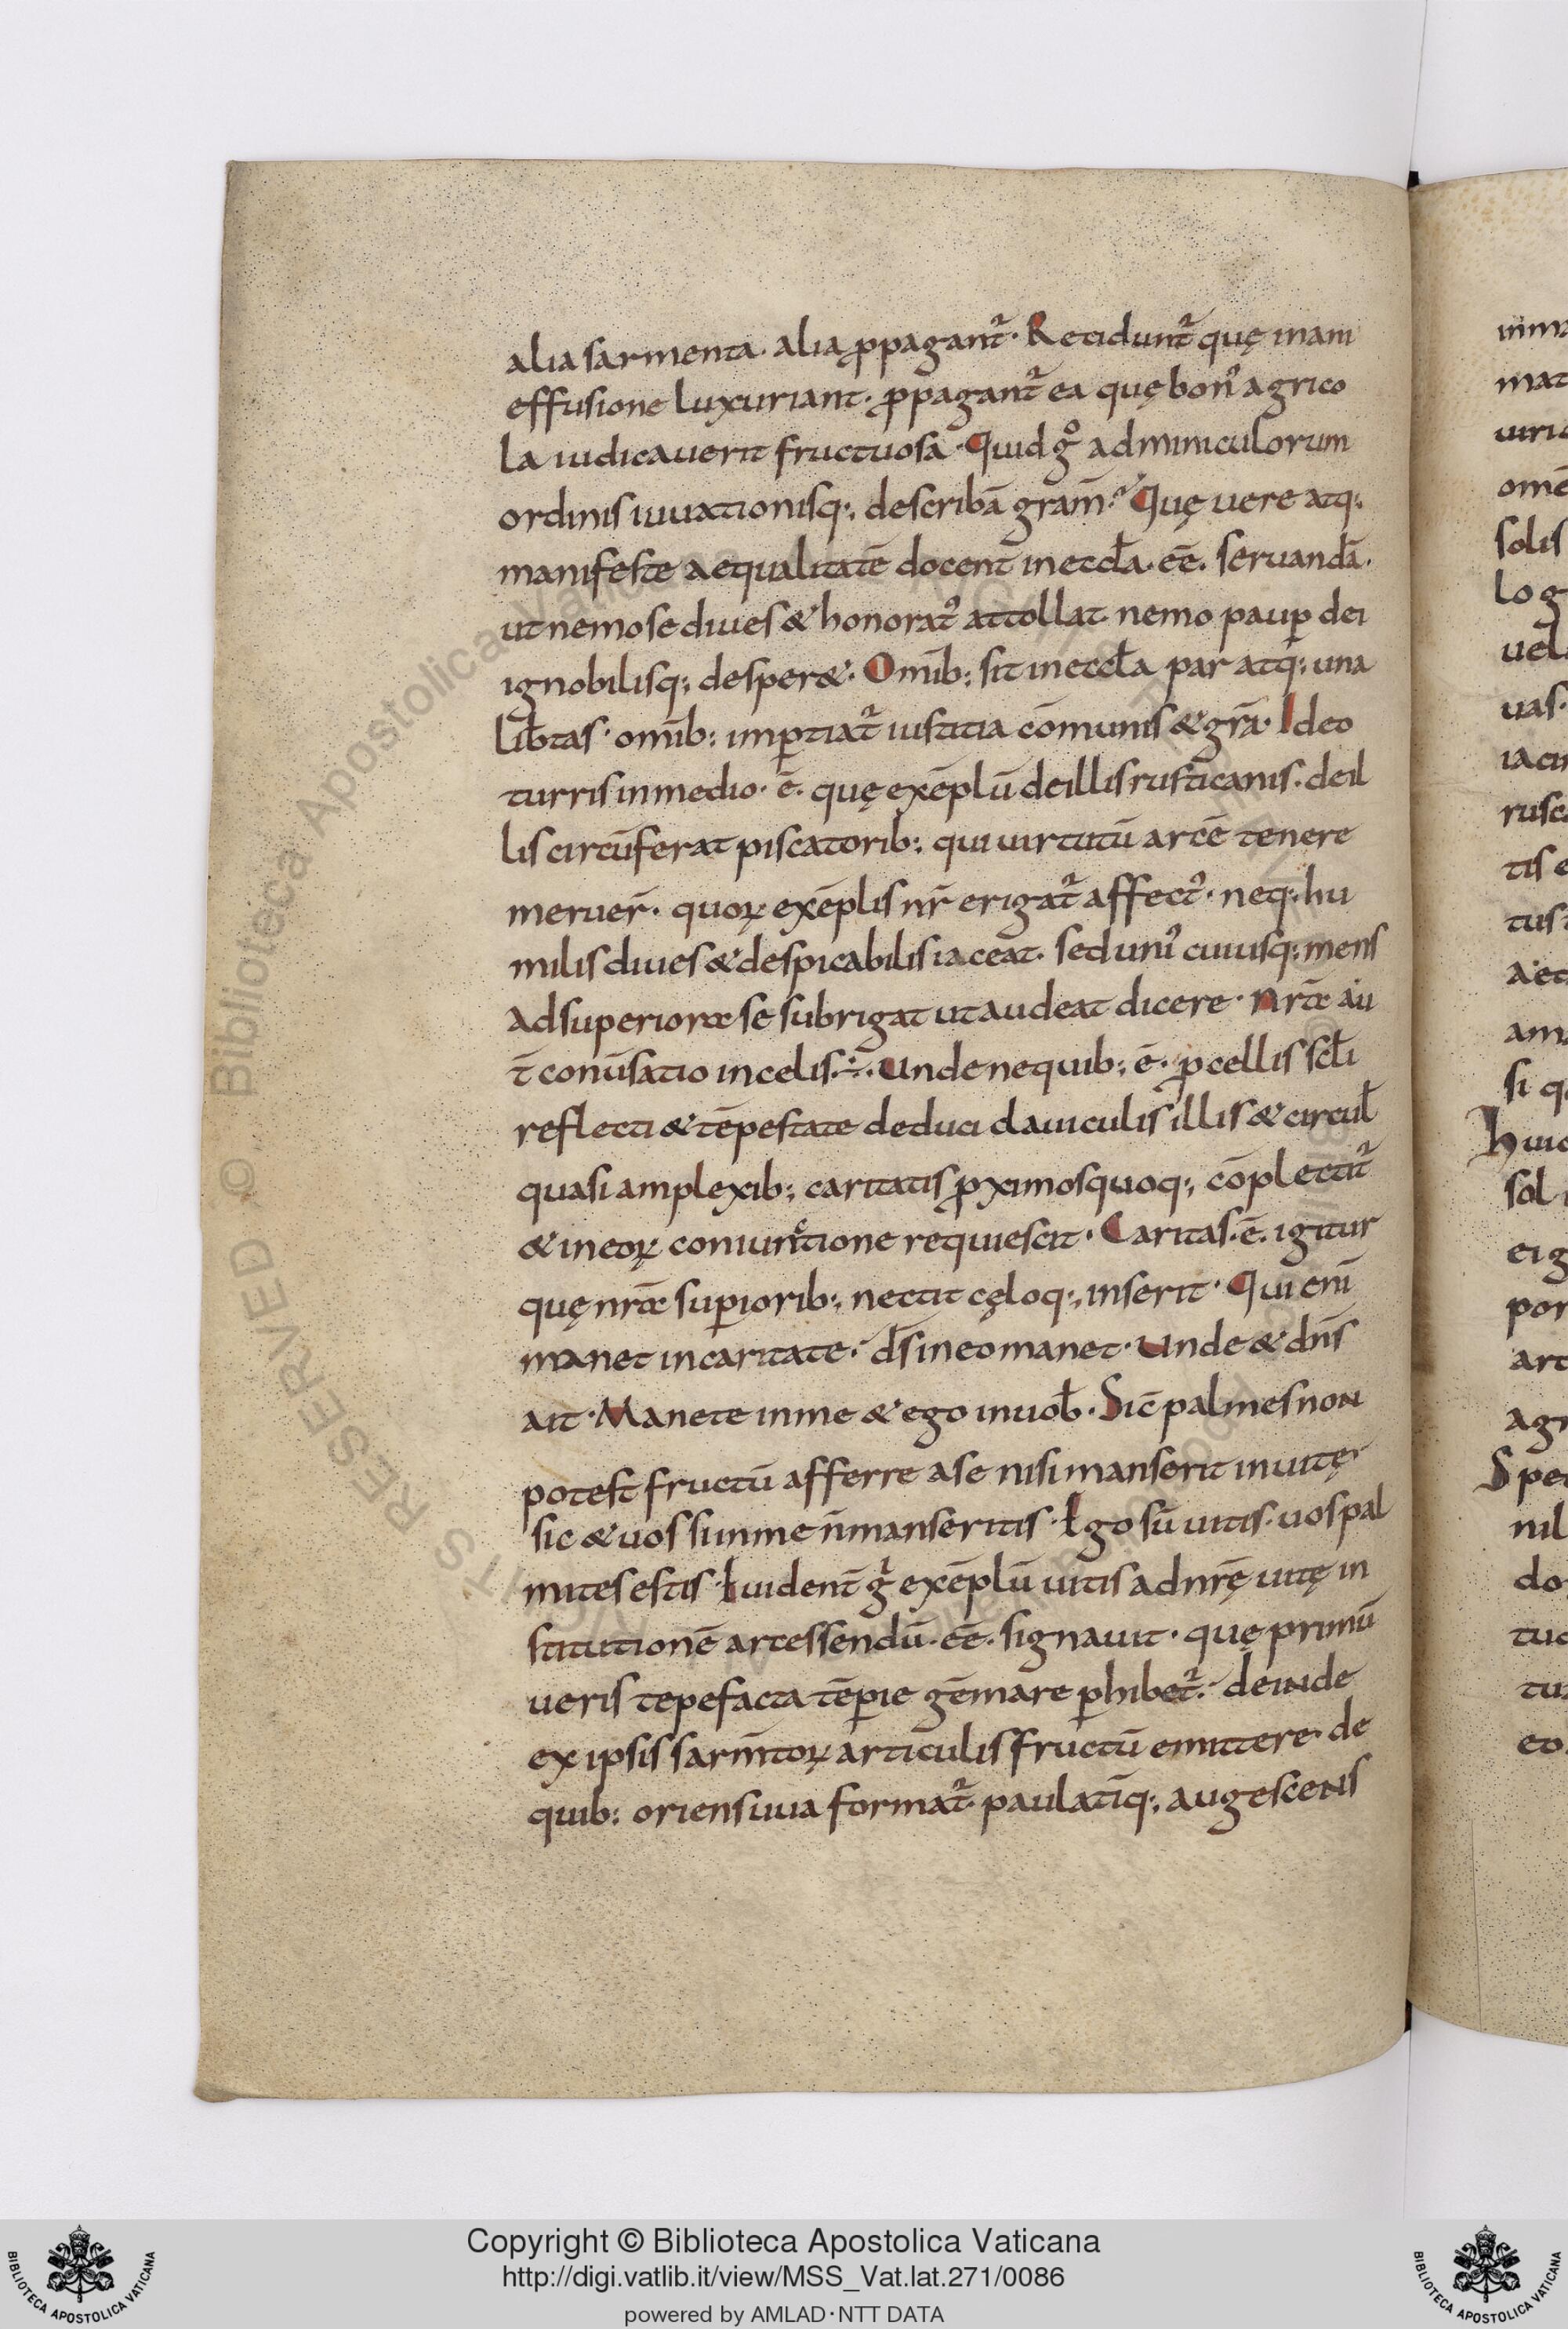 alia sarmenta. alia ꝓpagant᷑. Reciduntur᷑ quę inani
effusione luxuriant. ꝓpagant᷑ ea quę bonꝰ agrico
la iudicauerit fructuosa. Quid gͦ adminiculorum
ordinis iuuationisq; describā gram̄? Quę uere atq;
manifeste aequalitatē docent̄ in eccl̄a. eē. seruandā.
ut nemo se diues & honoratꝰ attollat nemo paup̄ dei
ignobilisq; desper&. Omīb; sit in eccl̄a par atq; una
lib̄tas. omīb; imꝑtiat᷑ iustitia cōmunis & gr̄a. Ideo
turris in medio. ē. quę exēplū de illis rusticanis. de il
lis circūferat piscatorib; qui uirtutū arcē tenere
meruer̄. quoꝝ exēplis nr̄ erigat᷑ affectꝰ. neq; hu
milis diues & despicabilis iaceat. sed unꝰ cuiusq; mens
ad superiora se subrigat ut audeat dicere. Nr̄a au
t̄ conūsatio in celis. ÷. Unde nequib; ē. ꝓcellis scl̄i
reflecti & tēpestate deduci clauiculis illis & circul̄
quasi amplexib; caritatis ꝓximos quoq; cōplectit᷑
& in eoꝝ coniunctione requiescit. Caritas. ē. igitur
quę nr̄a suꝑiorib; nectit cęloq; inserit. Qui eni̅
manet in caritate. ds̄ in eo manet. Unde & dn̄s
ait. Manete in me & ego in uob̄. Sic̄ palmes non
potest fructū afferre a se nisi manserit in uitę
sic & uos si in me n̄ manseritis. Ego sū uitis. uos pal
mites estis. Euident̄ gͥ exēplū uitis ad nr̄ę uitę in
stitutionē arcessendū. eē. signauit. quę primū
ueris tepefacta tēꝑie gēmare ꝑhibet᷑. deinde
ex ipsis sarm̄toꝝ articulis fructū emittere. de
quib; oriens uua format᷑. paulatīq; augescens
Copyright © Biblioteca Apostolica Vaticana
http://digi.vatlib.it/view/MSS_Vat.lat.271/0086
powered by AMLAD·NTT DATA
BIBLIOTECA APOSTOLICA VATICANA
BIBLIOTECA APOSTOLICA VATICANA